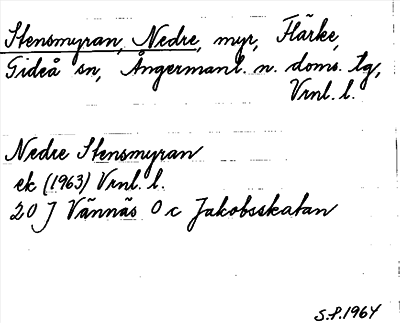 Stensmyran, Nedre, myr, Flärke,
Gideå sn, Ångermanl. n. doms. tg,
Vrnl. l.
Nedre Stensmyran
ek (1963) Vrnl. l.
20 J Vännäs 0 c Jakobsskatan
S.P.1964